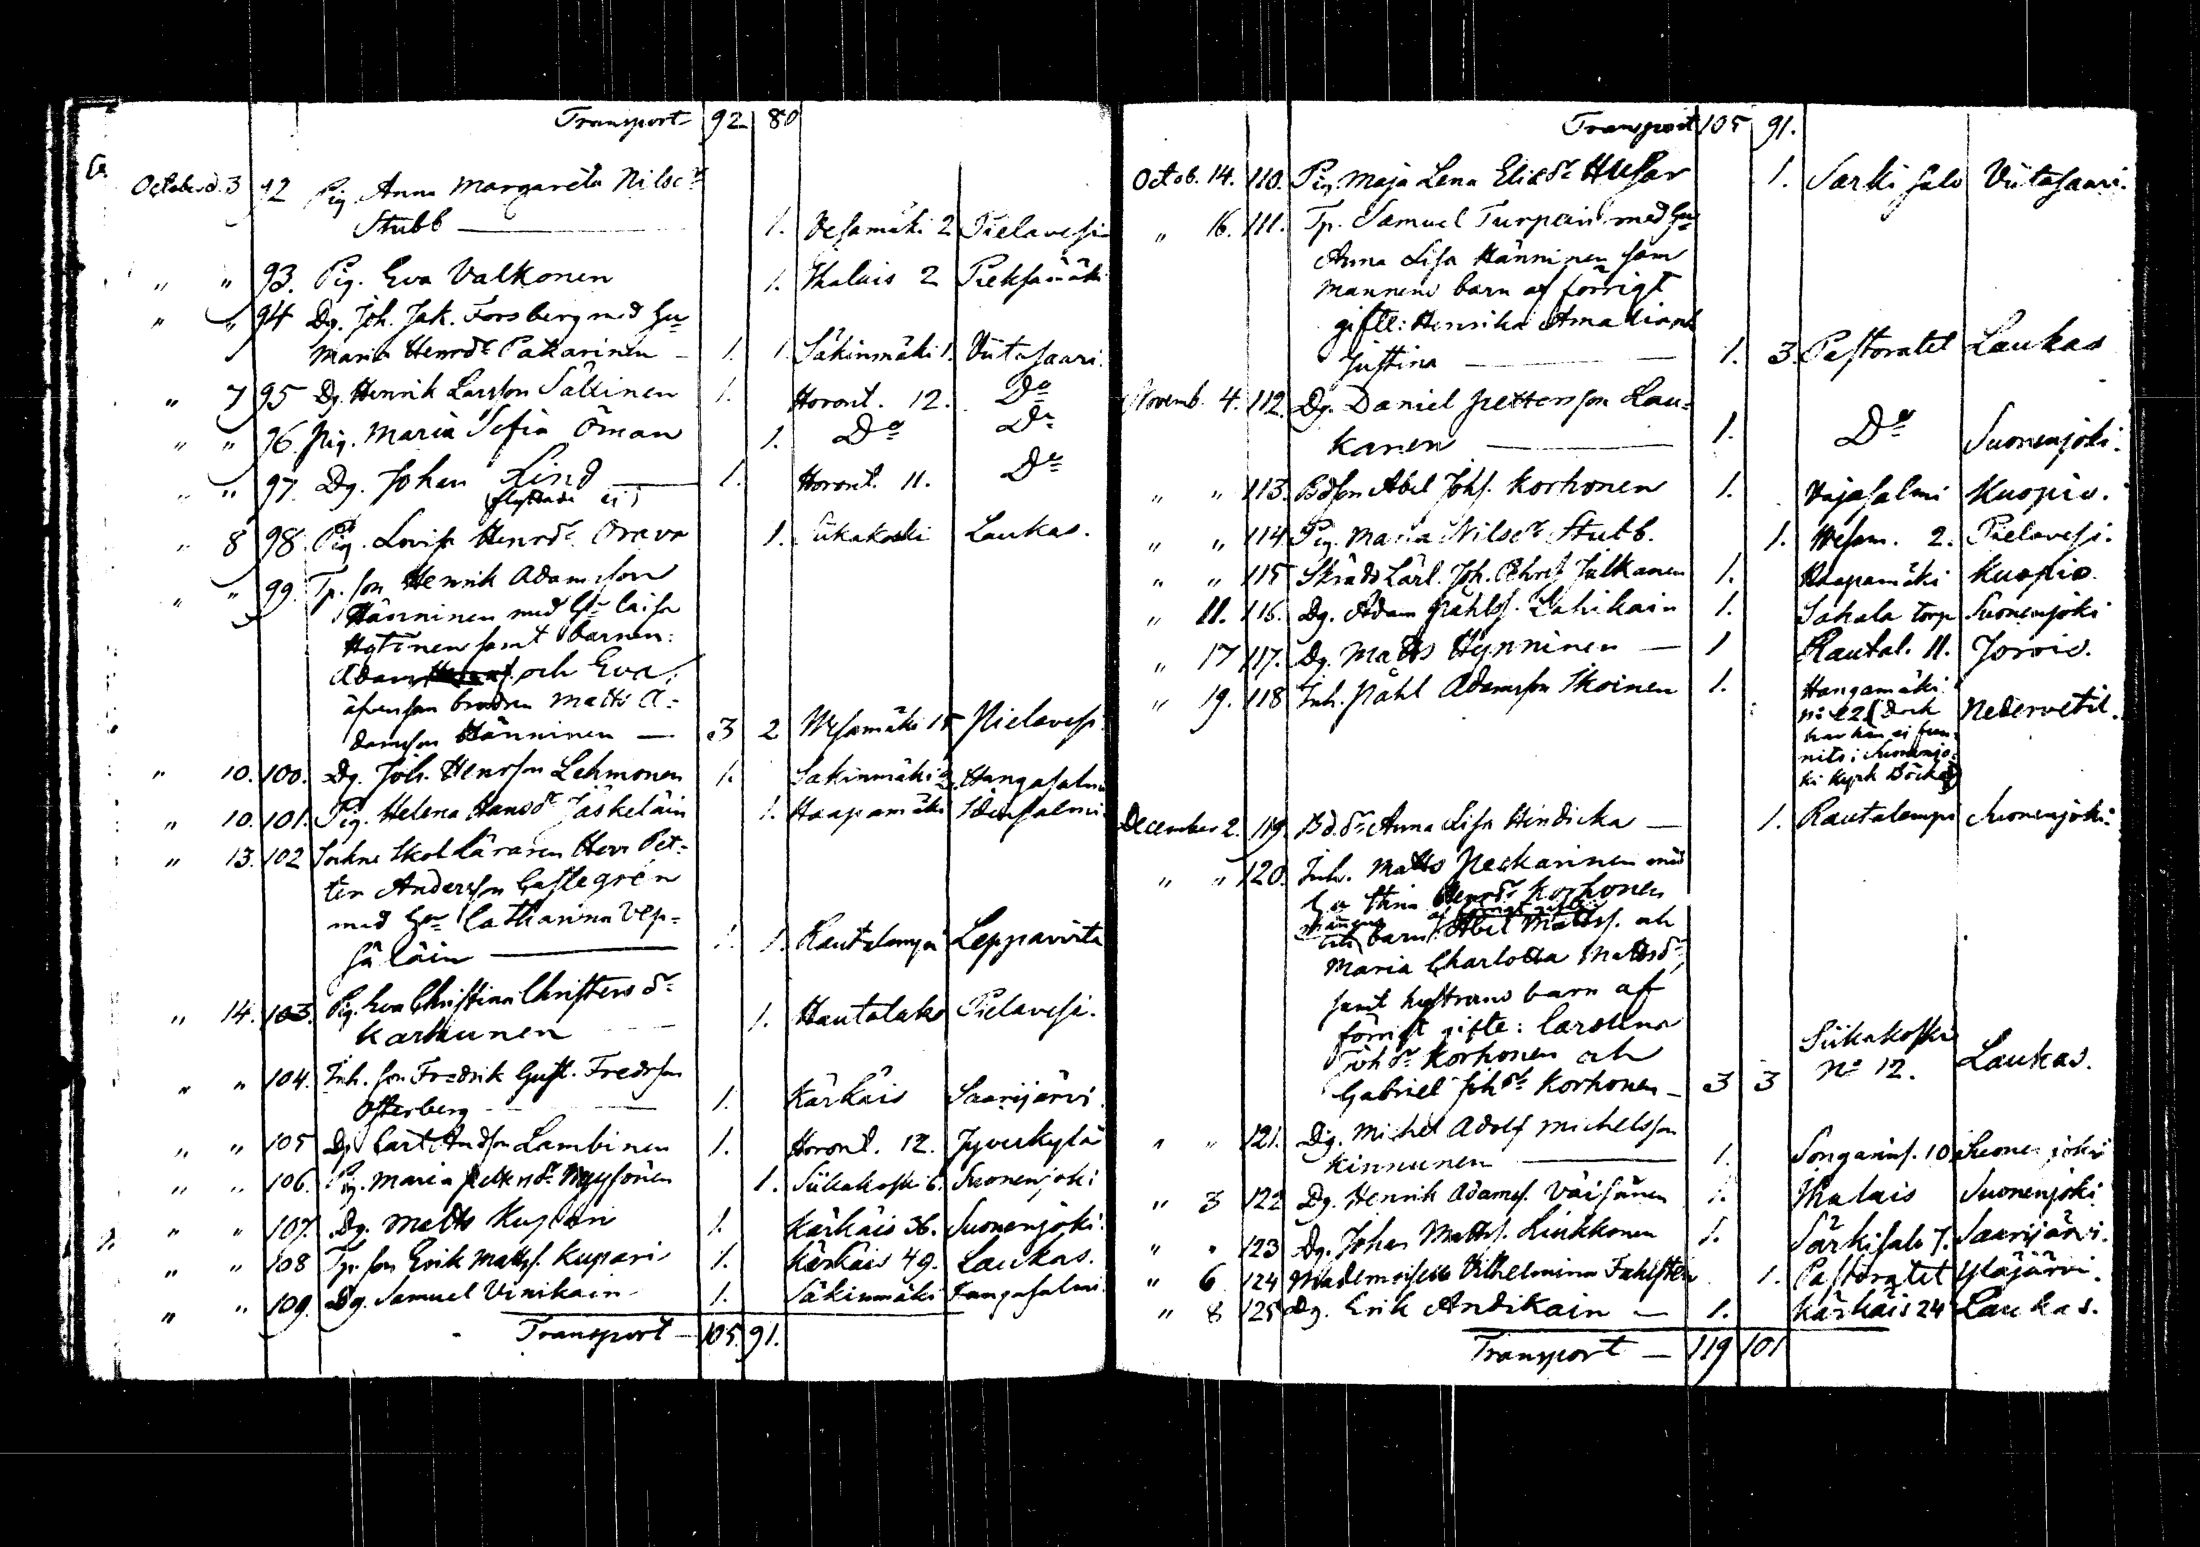 Transport 92 80
October d. 3 92 Pig Anna Margareta Nilsdr
Stubb — 1. Vesamäki 2 Pielavesi
" " 93. Pig. Eva Valkonen 1. Ihalais 2 Pieksämäki
" " 94 Dg. Joh. Jak. Forsberg med Hu
Maria Henrdr Pakarinen — 1. 1. Säkinmäki 1. Viitasaari.
" 7 95 Dg. Henrik Larsson Sällinen 1. Horont. 12. Do
" " 96 Pig. Maria Sofia Öman 1. Do Do
" " 97. Dg. Johan Lind — 1. Horont. 11. Do
flyttade ej
" 8 98. Pig. Lovisa Henrdr Orava 1. Siikakoski Laukas.
" " 99. Tp. son Henrik Adamsson
Hänninen med Hu Caisa
Hytinen samt barnen:
Adam och Eva,
äfvensom brodren Matts A=
damsson Hänninen — 3 2 Wesamäki 15 Pielavesi
" 10. 100. Dg. Joh. Henrsson Lehmonen 1. Säkinmäki Hangasalmi
" 10. 101. Pig. Helena Hansdr Jäskeläin 1. Haapamäki Idensalmi
" 13. 102 Sockne Skolläraren Herr Pet=
ter Andersson Castegrén
med Hu Catharina Vep=
säläin — 1. 1. Rautalampi Leppävirta
" 14. 103. Pig. Eva Christina Christersdr
Karhunen 1. Hautolaks Pielavesi.
" " 104. Inh. son Fredrik Gust. Fredrsson
Österberg 1. Kärkäis Saarijärvi.
" " 105 Dg. Carl Andsson Lambinen 1. Horont. 12. Jyveskylä
" " 106. Pig. Maria Pettersdr Nyyssönen 1. Siikakoski 6. Suonenjoki
" " 107. Dg. Matts Kuparin 1. Kärkäis 36. Suonenjoki.
" " 108 Tp. son Erik Matts. Kupari 1. Kärkäis 49. Laukas.
" " 109. Dg. Samuel Vinikain 1. Säkinmäki Kangasalmi
Transport — 105. 91.
Transport 105 91.
Octob. 14. 110. Pig. Maja Lena Eliasdr Husar 1. Särkisalo Viitasaari.
" 16. 111. Tp. Samuel Turpein med Hu
Anna Lisa Hänninen som
mannens barn af förrigt
gifte: Henrika Amalia och
Justina — 1. 3. Pastoratet Laukas
Novemb. 4. 112. Dg. Daniel Pettersson Lau=
kanen — 1. Do Suonenjoki.
" " 113. Bdson Abel Johs. Korhonen 1. Vajasalmi Kuopio.
" " 114 Pig. Maria Nilsdr Stubb. 1. Wesam. 2. Pielavesi.
" " 115 Skrädd. Lärl. Joh. Jalkanen 1. Haapamäki Kuopio.
" 11. 116. Dg. Adam Påhls. Lahikain 1. Sahala torp Suonenjoki
" 17 117. Dg. Matts Hynninen — 1 Rautal. 11. Jorois.
" 19. 118 Inh. Påhl Adamsson Ikoinen 1. Hangamäki
no 22 (Dock Nedervetil.
har han ej fun=
nits i Suonenjo=
ki kyrk Böcker)
December 2. 119. Bd.dr Anna Lisa Hindicka — 1. Rautalampi Suonenjoki.
" " 120. Inh. Matts Peckarinen med
Hu Stina Henrdr Korhonen
mannens af förrigt gifte
barn: Abel Matts. och
Maria Charlotta Mattsdr,
samt hustruns barn af
förrigt gifte: Carolina
Johdr Korhonen och Siikakoski
Gabriel Joh. Korhonen — 3 3 No 12. Laukas.
" " 121. Dg. Michel Adolf Michelsson
Kinnunen — 1. Songarins. 10 Suonenjoki
" 3 122 Dg. Henrik Adams. Väisänen 1. Ihalais Suonenjoki
" " 123 Dg. Johan Matts. Liukkonen 1. Särkisalo 7. Saarijärvi.
" 6 124 Mademoiselle Vilhelmina Fahlsten 1. Pastoratet Ylöjärvi.
" 8 125 Dg. Erik Andikain — 1. Kärkäis 24 Laukas.
Transport — 119 101